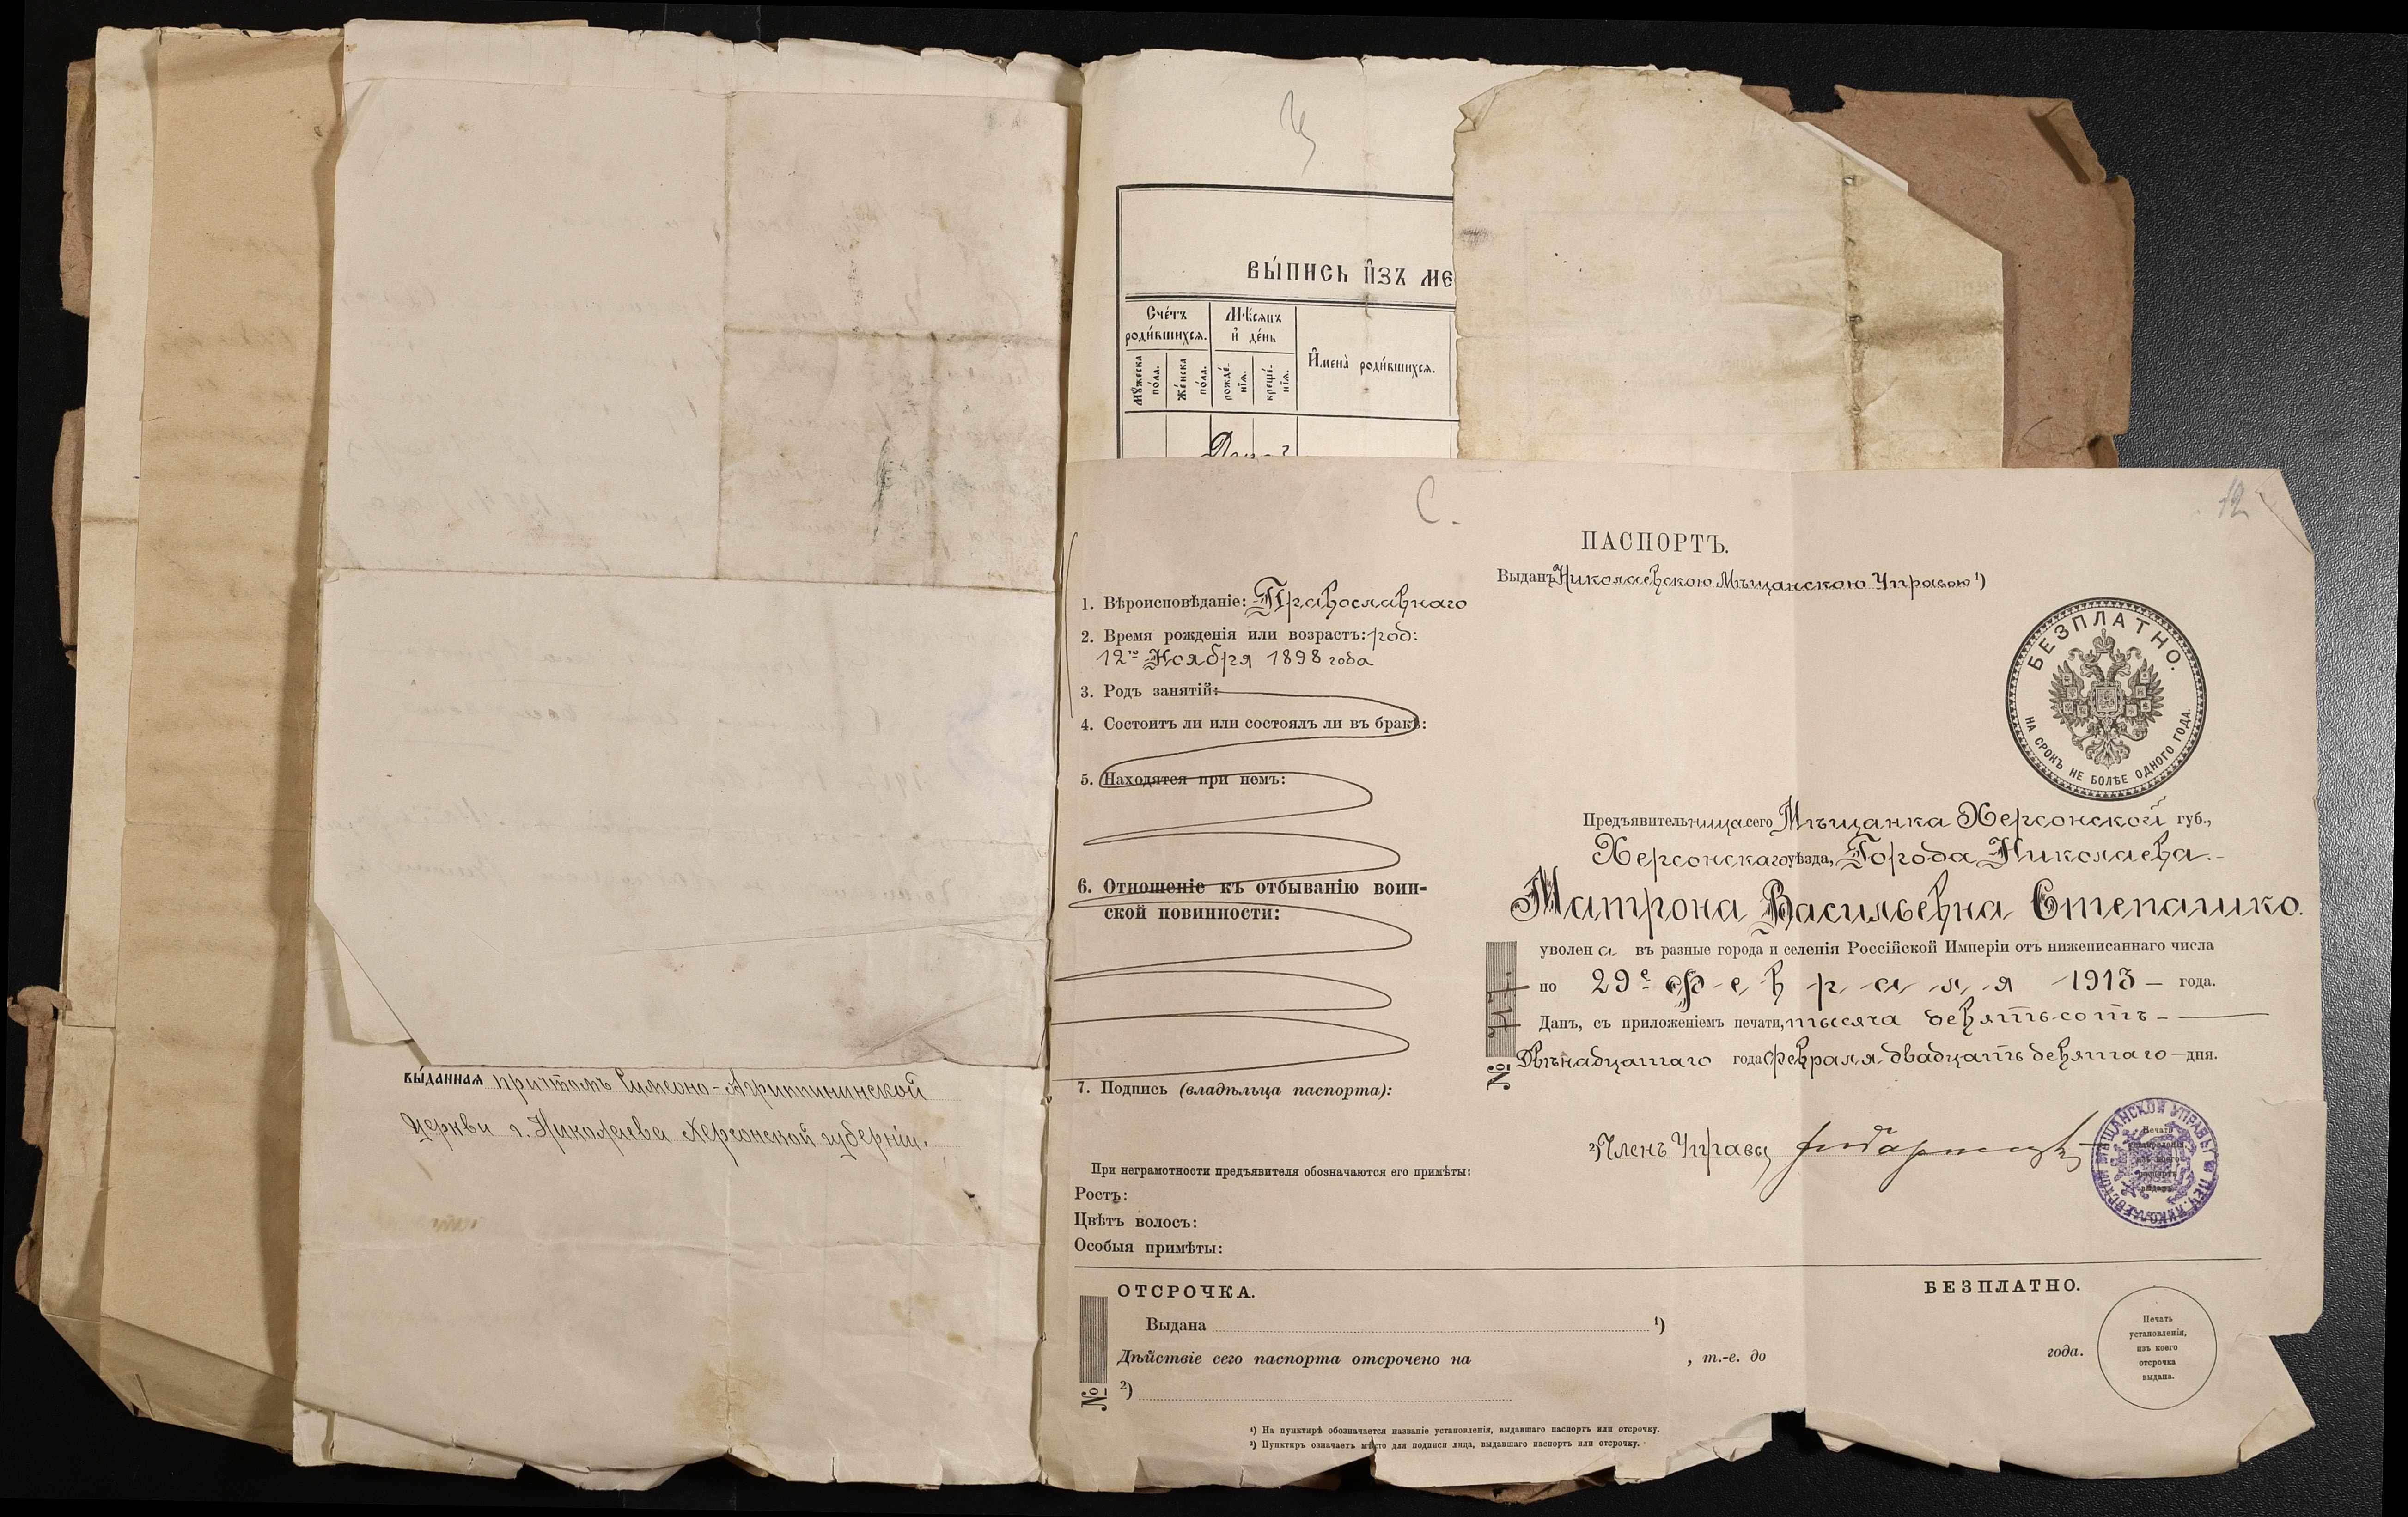 выданная причтомъ Симеоно-Агриппининской
Церкви г. Николаева Херсонской губерніи.
ВЫПИСЬ ИЗЪ МЕ
Счетъ родившихся.
Мужеска пола.
Женска пола.
Мѣсяцъ и день
рожденія.
крещенія.
Имена родившихся.
С.
12
ПАСПОРТЪ.
Выданъ Николаевскою Мѣщанскою Управою ¹)
1. Вѣроисповѣданіе: Православнаго
2. Время рожденія или возрастъ: род:
12го Ноября 1898 года
3. Родъ занятій:
4. Состоитъ ли или состоялъ ли въ бракѣ:
5. Находятся при немъ:
6. Отношеніе къ отбыванію воин-
ской повинности:
7. Подпись (владѣльца паспорта):
При неграмотности предъявителя обозначаются его примѣты:
Ростъ:
Цвѣтъ волосъ:
Особыя примѣты:
БЕЗПЛАТНО.
НА СРОКЪ НЕ БОЛѢЕ ОДНОГО ГОДА.
Предъявительница сего Мѣщанка Херсонской губ.,
Херсонскаго уѣзда, Города Николаева.
Матрона Васильевна Степашко.
уволена въ разные города и селенія Россійской Имперіи отъ нижеписаннаго числа
по 29е Февраля 1913 года.
Данъ, съ приложеніемъ печати, тысяча девятьсотъ
Двѣнадцатаго года Февраля двадцать девятаго дня.
№
²) Членъ Управы
ПЕЧ. НИКОЛАЕВСКОЙ МѢЩАНСКОЙ УПРАВЫ
ОТСРОЧКА.
БЕЗПЛАТНО.
Выдана ¹)
Дѣйствіе сего паспорта отсрочено на , т.-е. до года.
№ ²)
Печать
установленія,
изъ коего
отсрочка
выдана.
¹) На пунктирѣ обозначается названіе установленія, выдавшаго паспортъ или отсрочку.
²) Пунктиръ означаетъ мѣсто для подписи лица, выдавшаго паспортъ или отсрочку.